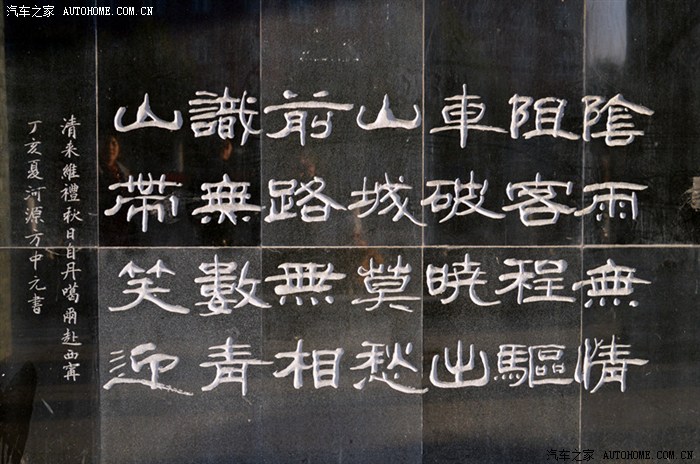 汽车之家 AUTOHOME.COM.CN
陰雨無情
阻客程驅
車破曉出
山城莫愁
前路無相
識無數青
山帶笑迎
清来維禮秋日自丹噶爾赴西寧
丁亥夏河源方中元書
汽车之家 AUTOHOME.COM.CN